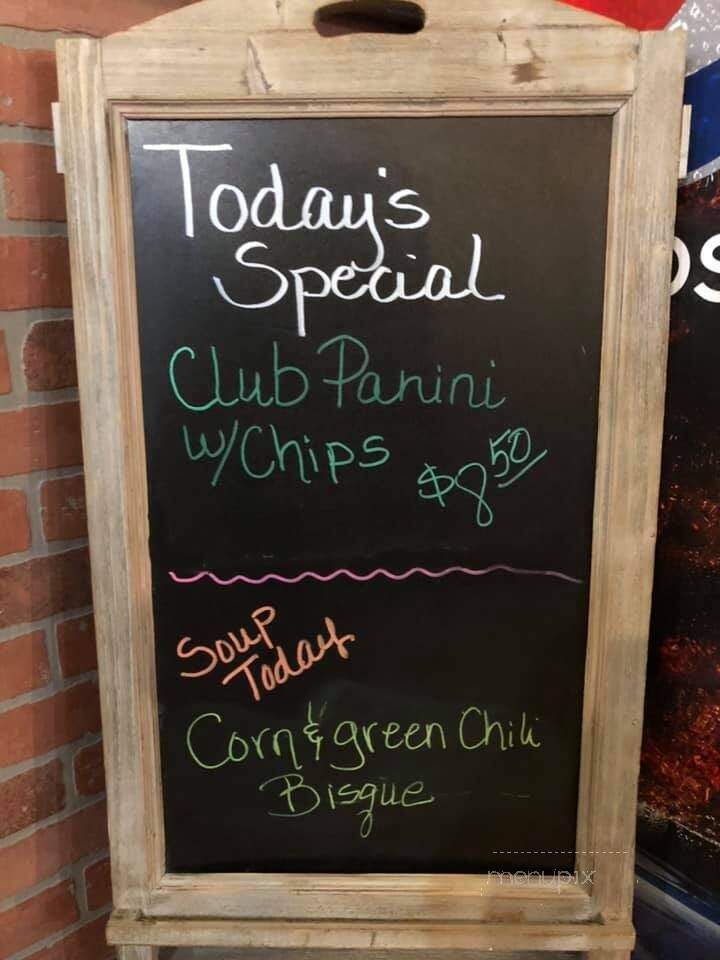 Today's
Special
Club Panini
w/Chips $8.50
Soup
Today
Corn & green Chili
Bisque
menupix